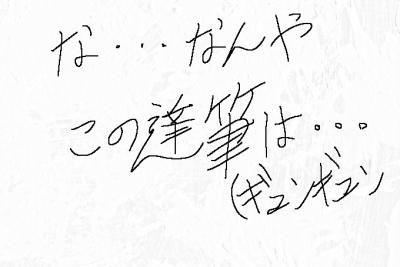 な・・・なんや
この達筆は・・・
(ギュンギュン